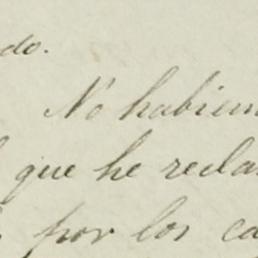 do.
No habien
que he recla
por los ca